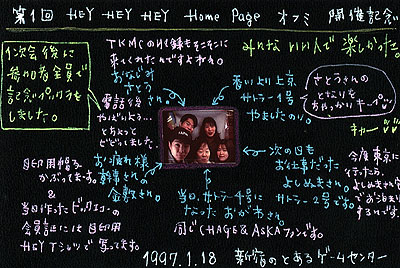 第1回 HEY HEY HEY Home Page オフミ 開催記念
1次会後に
参加者全員で
記念パックリを
しました。
TKMCの収録をモニターに
来てくれたんですよねぇ。
おなじみ
さとう
さん。
電話後
やばいよ…
とちょっと
ビビっていました。
香川より上京
サトラー1号
やましたのり。
みんないい人で楽しかった。
さとうさんの
となりを
ちゃっかりキープ
キャー
自印用帽子
かぶってます。
&
当日作ったビックエコーの
会員証には自印用
HEY Tシャツで写ってます。
お疲れ様
幹事さの
金敷さん。
当日、サトラー4号に
なった おがわさん。
同じくCHAGE&ASKAファンです。
次の日も
お仕事だった
よしぬまさん
サトラー2号です。
今度東京に
行ったら、
よしぬまさん宅
1997.1.18 新宿のとあるゲームセンター